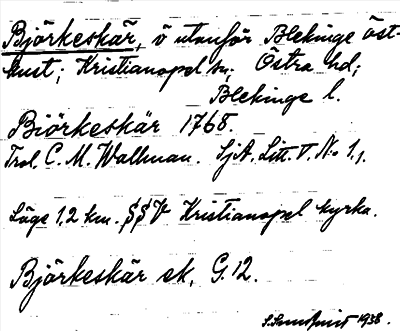 Björkeskär, ö utanför Blekinge öst-
kust; Kristianopel sn; Östra hd;
Blekinge l.
Biörkeskär 1768.
Trol. C. M. Wallman. SjA. Litt. V. No 1,1.
Läge 1,2 km. SSV Kristianopel kyrka.
Björkeskär ek. G. 12.
S. Sundquist 1938.